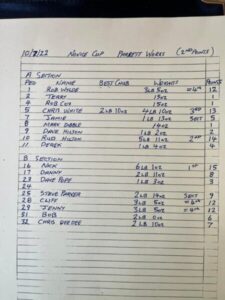 10/7/22 NOVICE CUP PARRETT WORKS (2ND POINTS)
A SECTION
PEG NAME BEST CHUB WEIGHTS POINTS
1 ROB WYLDE 3LB 5OZ =4TH 12
2 TERRY 15OZ 1
4 ROB COX 15OZ 1
5 CHRIS WHITE 2LB 10OZ 4LB 10OZ 3RD 13
7 JAMIE 1LB 13OZ SECT 5
8 MARK DOBLE 14OZ 1
9 DAVE HILTON 1LB 2OZ 2
10 ROSS HILTON 5LB 11OZ 2ND 14
11 DEREK 1LB 4OZ 4
B SECTION
16 NICK 6LB 1OZ 1ST 15
17 DANNY 2LB 8OZ 11
23 DAVE POPE 1LB 3OZ 3
24
25 STEVE PARKER 2LB 14OZ SECT 9
28 CLIFF 3LB 5OZ =4TH 12
29 JENNY 3LB 5OZ =4TH 12
31 BOB 2LB 0OZ 6
32 CHRIS 2LB 10OZ 7